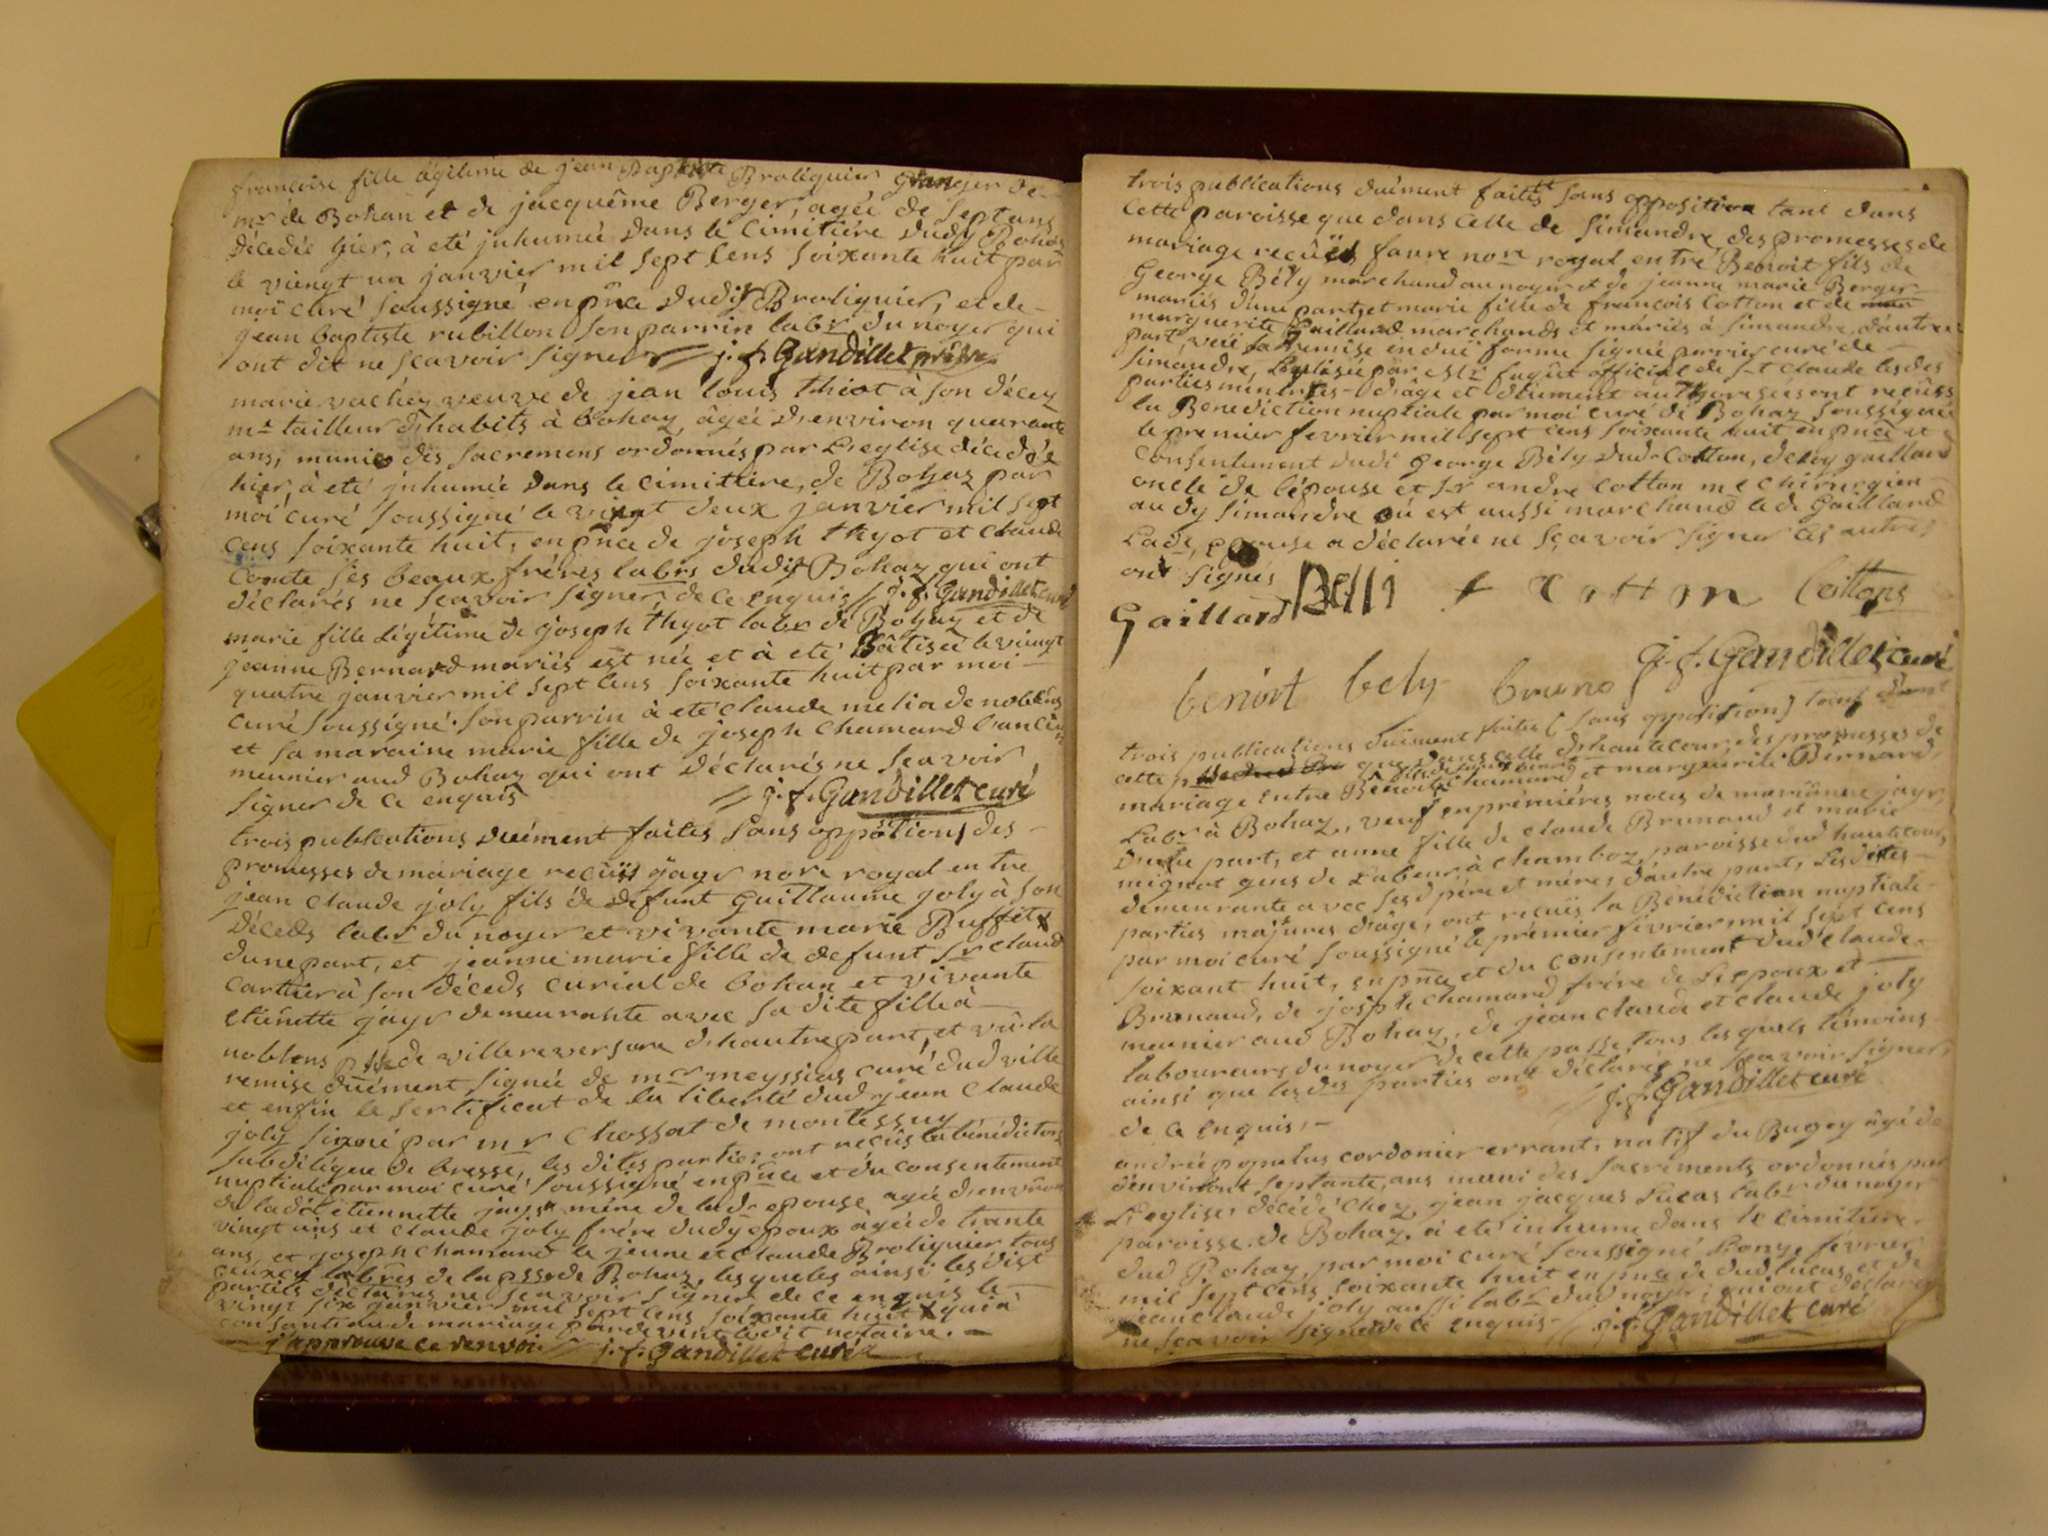 francoise fille légitime de jean Baptiste Broliquier granger de-
mr de Bohan et de jacquême Berger, agée de sept ans
décedée hier, à eté juhumée dans le cimitiére dudy Bohas
le viengt un janvier mil sept cens soixante huit par
moi curé soussigné en pnce dudit Broliquier, et de-
jean baptiste rubillon son parrin labr du noyer qui
ont dit ne scavoir signer j. f. Gandillet
marie vachey veuve de jean louis thiot à son décez
mr tailleur d'habits à bohaz, âgée d'environ quarante
ans, munie des sacremens ordonnés par l'eglise décedée
hier, à eté juhumée dans le cimittiere, de Bohaz par
moi curé soussigné le vingt deux janvier mil sept
cens soixante huit, en pnce de joseph thyot et claude
comte ses beaux fréres labrs dudit Bohaz qui ont
déclarés ne scavoir signer de ce enquis j. f. Gandillet curé
marie fille légitime de joseph thyot labr de Bohaz et de
jeanne Bernard mariés est née et à eté Bâtisée le viengt
quatre janvier mil sept cens soixante huit par moi-
curé soussigné. son parrin à eté claude melia de noblens
et sa maraine marie fille de joseph chamard l'ancien
meunier aud Bohaz qui ont déclarés ne scavoir
signer de ce enquis j. f. Gandillet curé
trois publications duément faites sans oppôtions des-
promesses de mariage reçuës jayr nore royal entre
jean claude joly fils de defunt guillaume joly à son
déceds labr du noyer et vivante marie Buffet
dune part, et jeanne marie fille de defunt sr claude
cartier à son déceds curial de bohan et vivante
etiênette jayr demeurante avec sa dite fille à-
noblens psse de villereversure d'hautre part, et vû la
remise duément signée de mr meyssias curé dud ville
et enfin le sertificat de la liberté dud jean claude
joly signé par mr Chossat de montessuy
subdélégué de bresse, les dites parties ont reçus la bénédiction
nuptiale par moi curé soussigné en pnce et du consentement
de ladit etiennette jayr mére de lade epouse agée d'environ
vingt ans et claude joly frére dudy epoux âgée de trente
ans, et joseph chamard le jeune et claude Broliquier tous
ceux cy labrs de la psse de Bohaz, lesqueles ainsi lesdist
parties déclarés ne scavoir signer de ce enquis le
vingt six janvier mil sept cens soixante huit
mariage ledit notaire.-
j'approuve ce renvoi j. f. Gandillet curé
trois publications duëment faites sans opposition tant dans
cette paroisse que dans celle de simandre, des promesses de
mariage reçûës favre nore royal entre Benoit fils de
George Bély marchand au noyer et de jeanne marie Berger
mariés d'une part, et marie fille de francois Cotton et de
marguerite Gailland marchands et máriés à simandre, d'autre
part, veüe la remise en düe forme signée curé de
simandre, par Mr official de st claude lesdes
parties d'âge et dûement authorisées ont reçûës
la Benediction nuptiale par moi curé de Bohaz soussigné
le premier fevrier mil sept cens soixante huit en pnce et
consentement dudi george Bély dud Cotton, de gaillard
oncle de l'épouse et sr andre Cotton me chirurgien-
au dy simandre où est aussi marchand le de Gaillard
Lade, epouse a déclarée ne sçavoir signer les autres
ont signés Belli f Cotton Cottons
Gaillard
j. f. Gandillet curé
benoit bely bruno
trois publications duëment faites (sans opposition) tant dans
cette que dans celle d'hautecour, des promesses de
mariage entre Benoit chamard et marguerite Bernard,
Labr à Bohaz, veuf en prémiéres noces de marianne jayr,
d'une part, et anne fille de claude Brunaud et marie
mignot gens de labeur à chamboz paroisse dud hautecour
demeurante avec sesd pére et méres d'autre part, lesdites-
parties majures d'âge, ont reçuës la Bénédiction nuptiale-
par moi curé soussigné le prémier février mil sept cens
soixant huit, en pnce et du consentement dud claude-
Brunaud, de joseph chamard frére de l'epoux et
meunier aud Bohaz, de jean claude et claude joly
laboureurs du noyer de cette passe tous lesquels témoins
ainsi que lesdes parties ont déclarés ne scavoir signer
de ce enquis,- j. f. Gandillet curé
andrée popelus cordonier errant, natif du Bugey âgé de
d'environt septante, ans muni des sacrements ordonnés par
l'eglise, décédé chez jean jacques Lucas labr du noyer
paroisse de Bohaz, à eté inhumé dans le cimitiere-
dud Bohaz, par moi curé soussigné l'onze février
mil sept cens soixante huit en pnce de dud lucas et de
jean claude joly aussi labr dud noyer, qui ont déclarés
ne scavoir signer de ce enquis- j. f. Gandillet curé